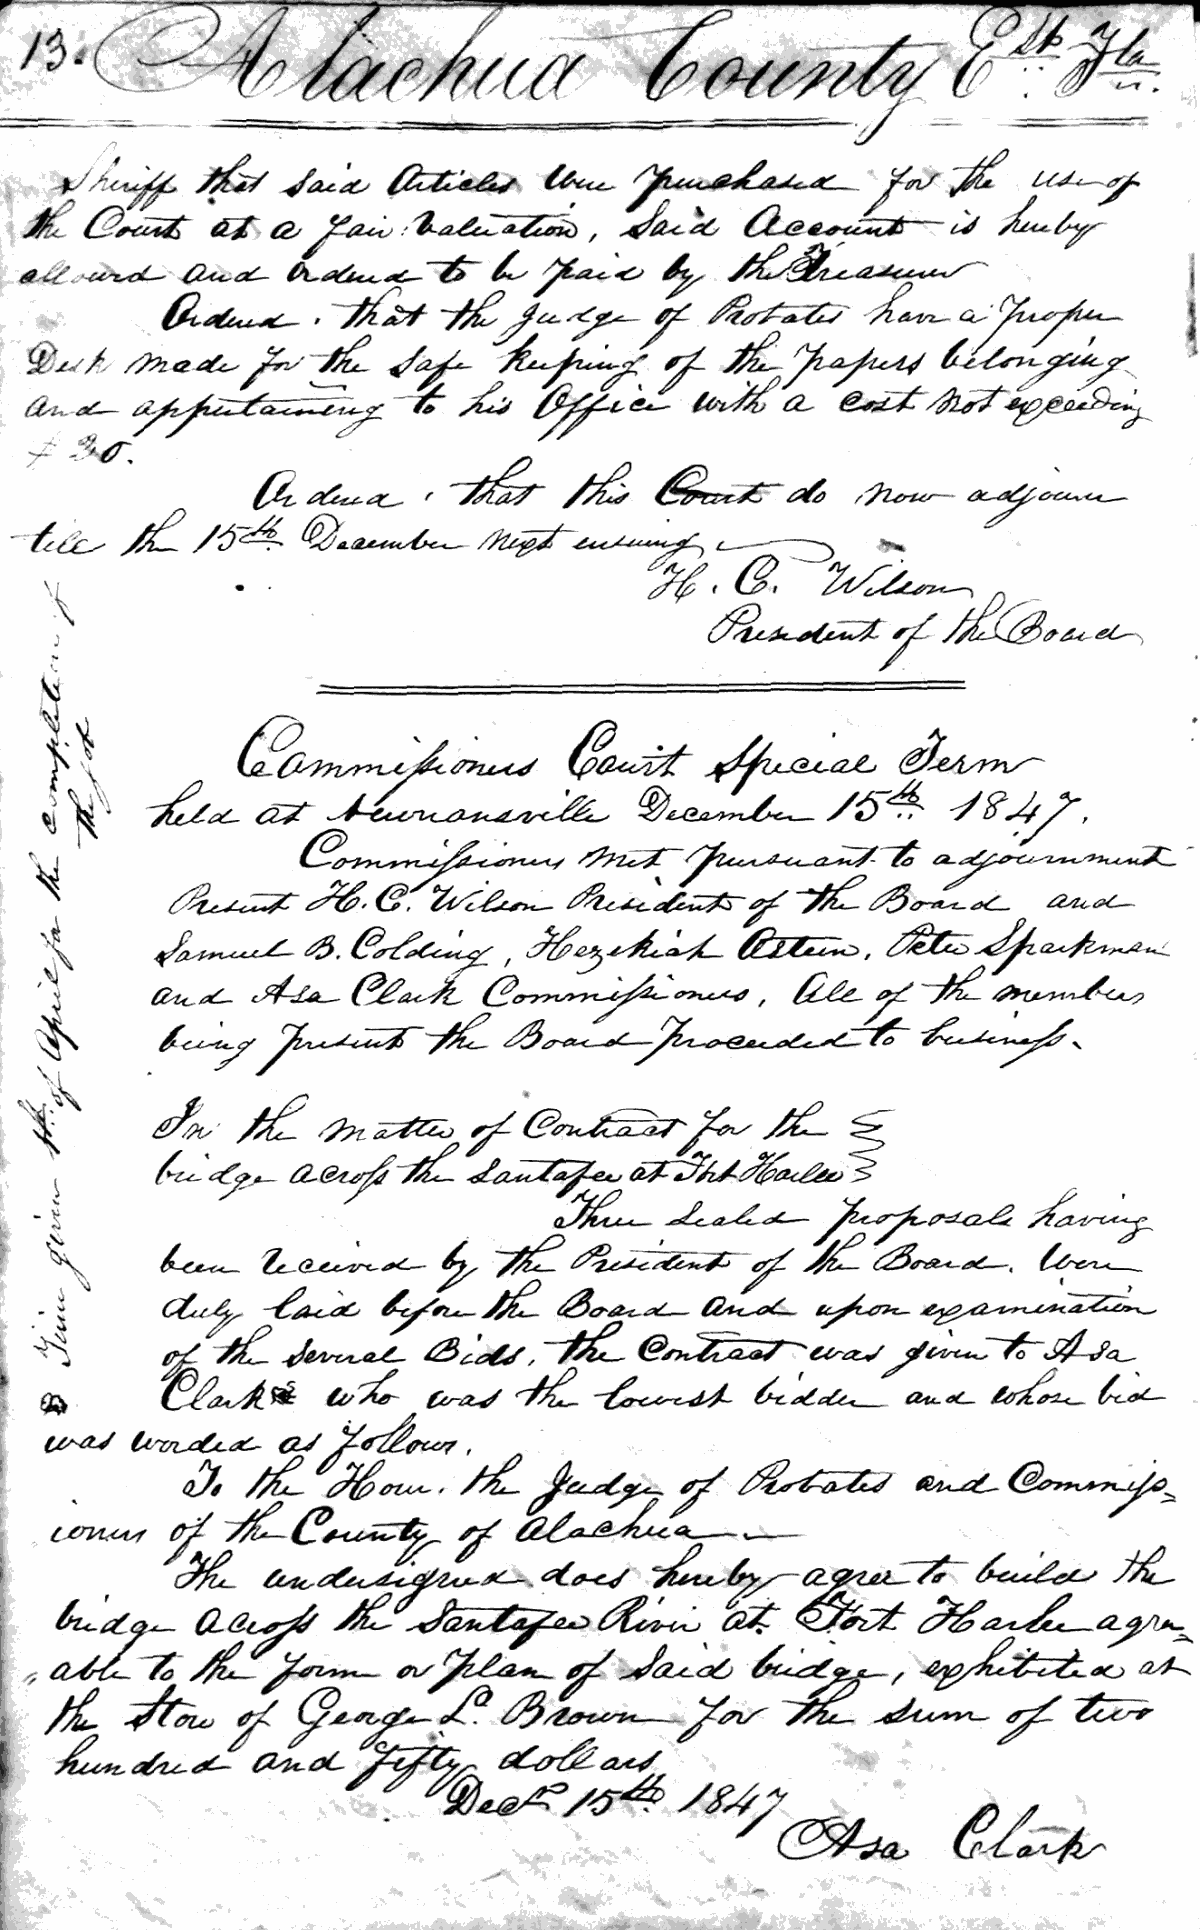 13. Alachua County Est Fla
Sheriff that said Articles were purchased for the use of
the Court at a fair valuation, said Account is hereby
allowed and ordered to be paid by the Treasurer
Ordered, that the Judge of Probates have a proper
Desk made for the safe keeping of the papers belonging
and appertaining to his Office with a cost not exceeding
$ 30.
Ordered, that this Court do now adjourn
till the 15th December next ensuing
H. C. Wilson
President of the Board
Commissioners Court Special Term
held at Newnansville December 15th 1847.
Commissioners met pursuant to adjournment
Present H. C. Wilson President of the Board and
Samuel B. Colding, Hezekiah Osteen, Peter Sparkman
and Asa Clark Commissioners, All of the members
being present the Board proceeded to business.
In the matter of Contract for the
bridge across the Santafee at Fort Harlee
Three sealed proposals having
been received by the President of the Board. Were
duly laid before the Board and upon examination
of the several Bids, the Contract was given to Asa
Clark who was the lowest bidder and whose bid
was worded as follows.
To the Honr. the Judge of Probates and Commiss=
ioners of the County of Alachua
The undersigned does hereby agree to build the
bridge across the Santafee River at Fort Harlee agree=
"able to the form or plan of said bridge, exhibited at
the Store of George L. Brown for the sum of two
hundred and fifty dollars
Decr 15th 1847
Asa Clark
Time given of April for the completion of
the job